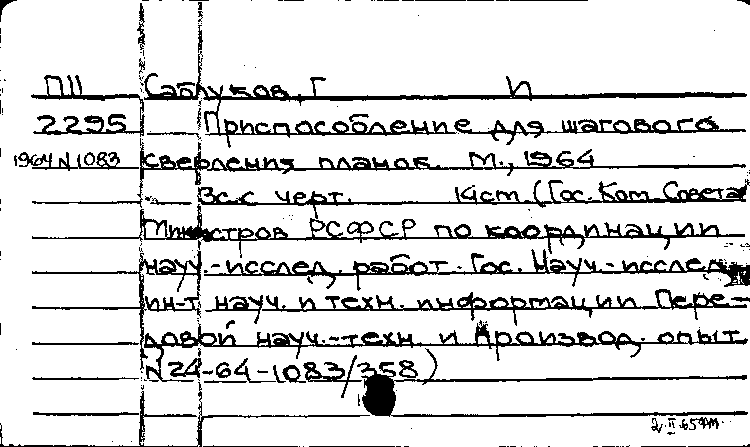 П11 Саблуков, Г И
2295 Приспособление для шагового
1964 N 1083 сверления планок. М., 1964
3с. с черт. (Гос. Ком. Совета
Министров РСФСР по координации
науч.-исслед. работ. Гос. Науч.-исслед.
ин-т науч. и техн. информации Пере-
довой науч.-техн. и производ. опыт
N 24-64-1083/358)